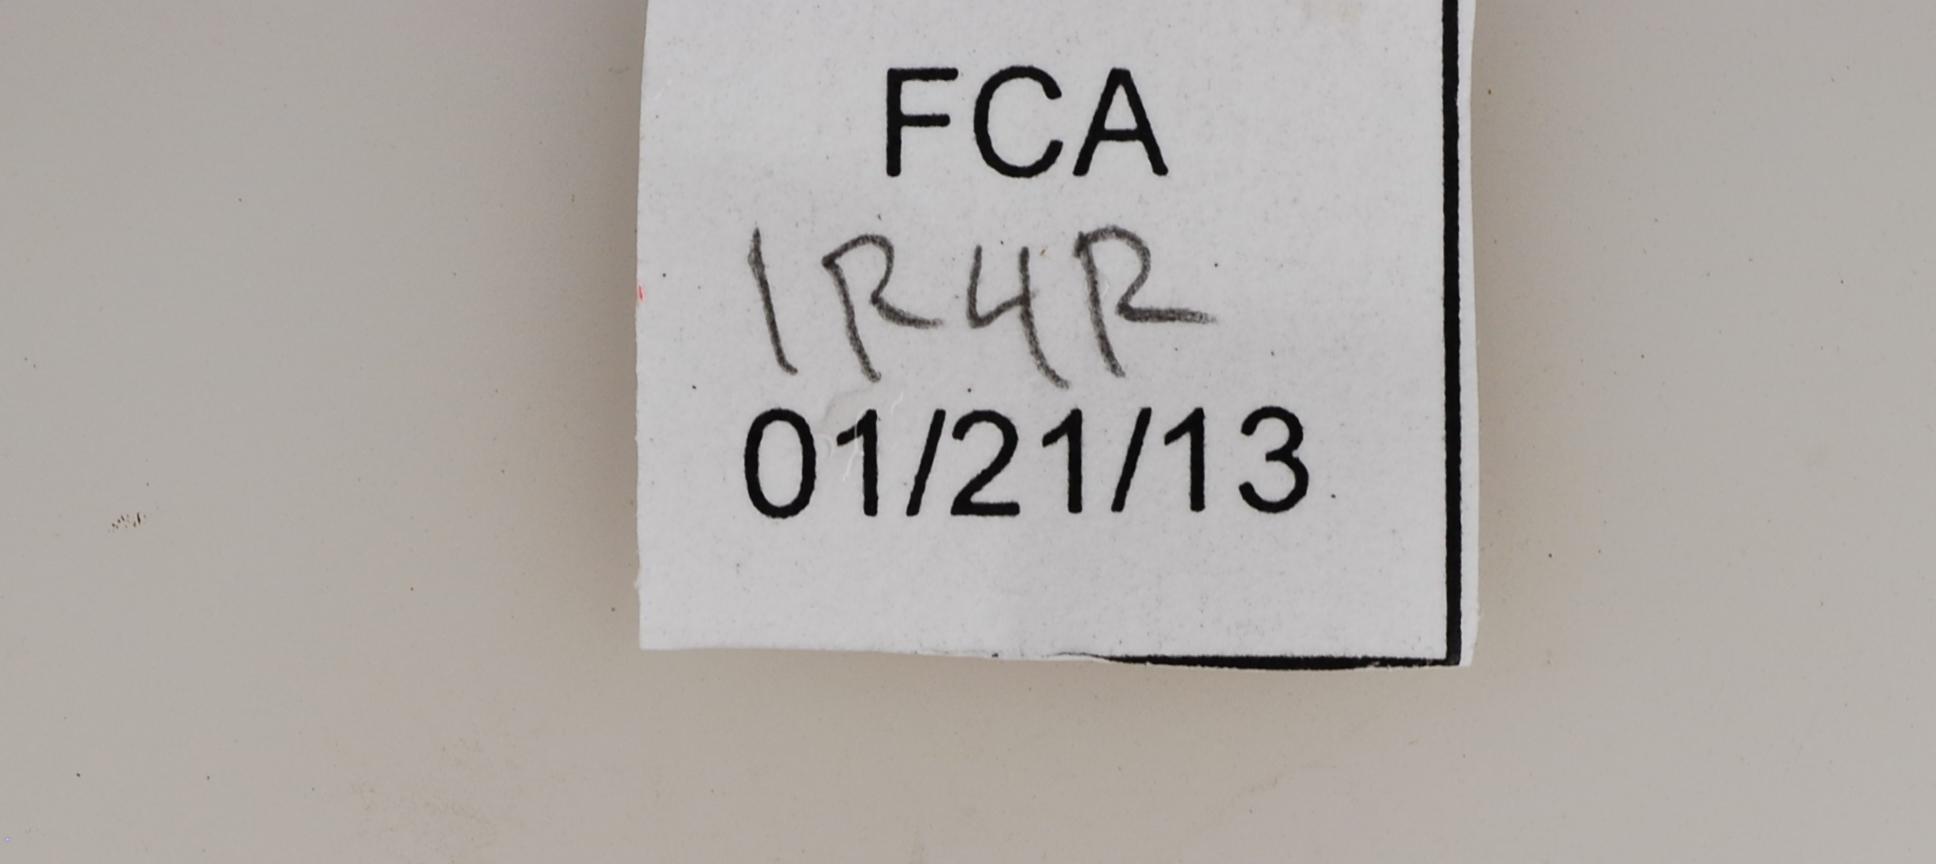 FCA
1R4R
01/21/13